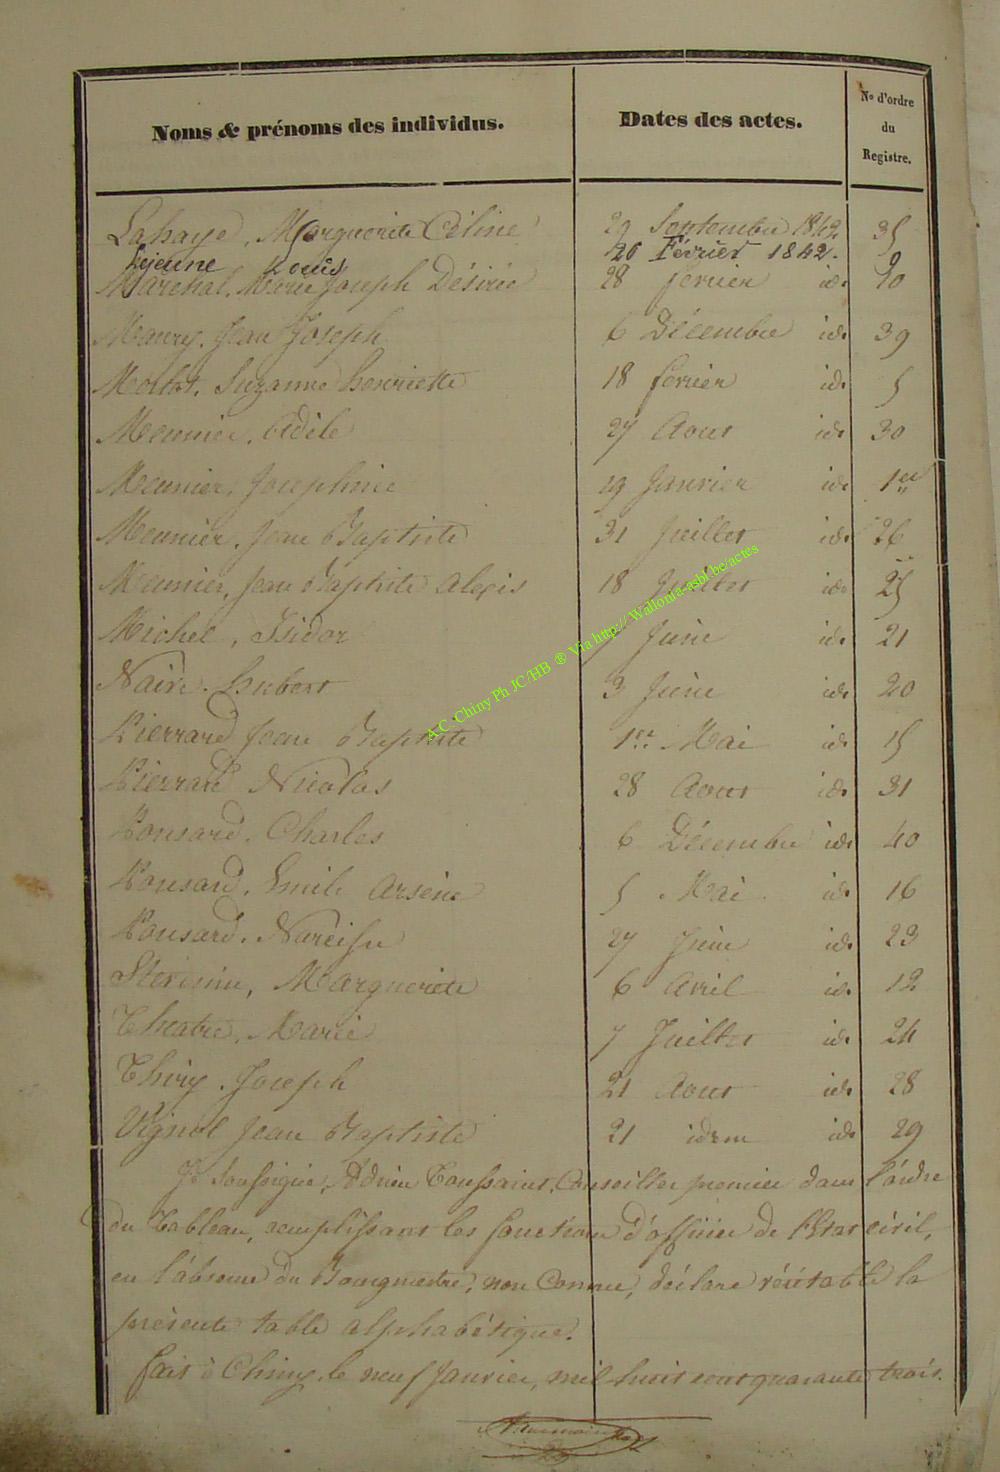 Noms & prénoms des individus. Dates des actes. No d'ordre du Registre.
Lahaye, Marguerite Céline 29 Septembre 1842 35
Lejeune Louis 26 Février 1842. 9
Maréchal, Marie Joseph Désirée 28 fevrier id. 10
Maury, Jean Joseph 6 Décembre id. 39
Suzanne henriette 18 fevrier id. 5
Meunier, Adèle 27 Aout id. 30
Meunier, Josephine 19 Janvier id. 1er
Meunier, Jean Baptiste 31 Juillet id. 26
Meunier, Jean Baptiste Alexis 18 Juillet id. 25
Michel, Isidor 7 Juin id. 21
hubert 3 Juin id. 20
Pierrard Jean Baptiste 1er Mai id. 15
Pierrard Nicolas 28 Aout id. 31
Ponsard, Charles 6 Décembre id. 40
Ponsard, Emile Arsène 5 Mai id. 16
Ponsard, Narcisse 27 Juin id. 23
Marguerite 6 Avril id. 12
Théatre, Marie 7 Juillet id. 24
Thiry, Joseph 21 Aout id. 28
Vignol Jean Baptiste 21 idem id. 29
Je soussigné, Adrien Toussaint, Conseiller premier dans l'ordre
du Tableau, remplissant les fonctions d'officier de l'Etat civil,
en l'absence du Bourgmestre, non Connue, déclare véritable la
présente table alphabétique.
fait à Chiny, le neuf Janvier, mil huit cent quarante trois.
A.C. Chiny Ph JC/HB ® Via http://Wallonia-asbl-be/actes